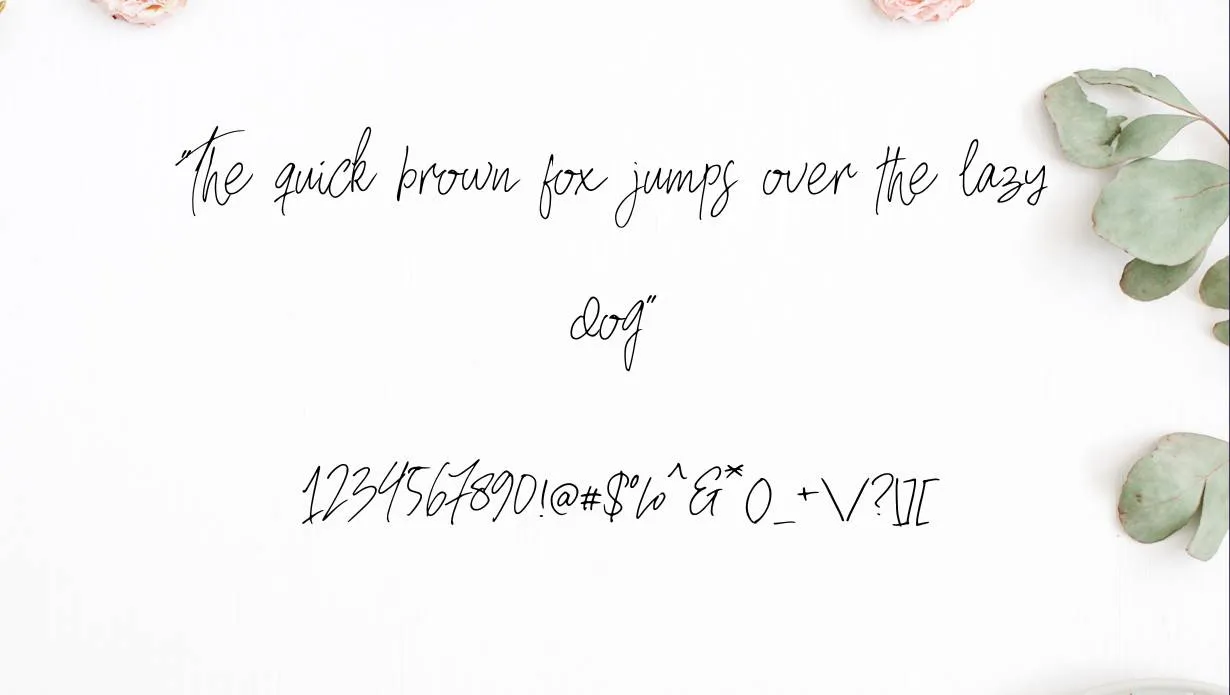 "The quick brown fox jumps over the lazy
dog"
1234567890!@#$%^&*()_+\/?\][